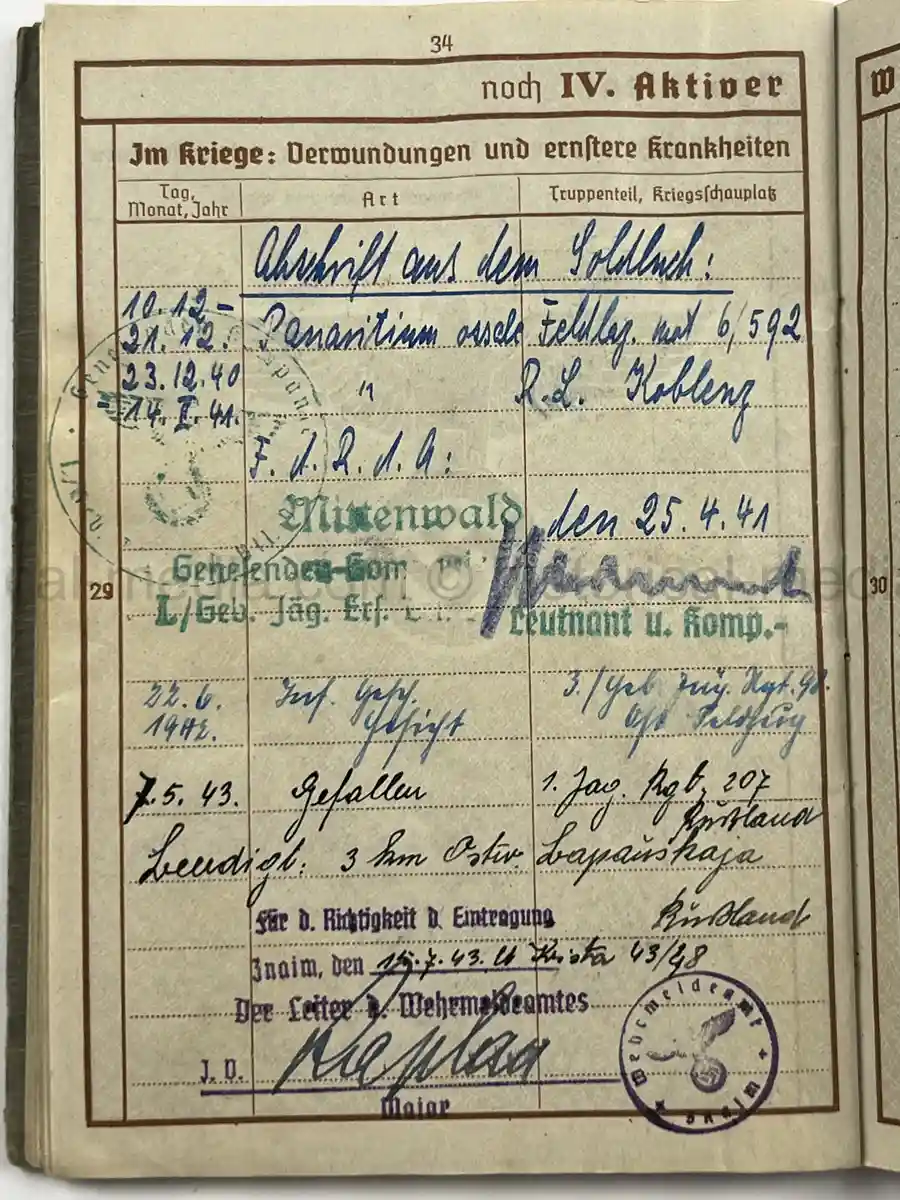 34
noch IV. Aktiver
Im Kriege: Verwundungen und ernstere Krankheiten
Tag, Monat, Jahr
Art
Truppenteil, Kriegsschauplatz
Abschrift aus dem Soldbuch:
10.12-
21.12. Panaritium Feldlaz. mot 6/592
23.12.40 " R.L. Koblenz
14.II.41.
F. d. R. d. A:
Mittenwald den 25.4.41
Genesenden-Kom
I./Geb. Jäg. Ers.
Leutnant u. Komp.-
29
30
22.6. Inf. Gesch. 3./Geb. Jäg. Rgt. 98.
1942. Gesicht Ost Feldzug
7.5.43. Gefallen 1. Jäg. Rgt. 207
Rußland
3 km Ostw.
Rußland
Für d. Richtigkeit d. Eintragung
Znaim, den 43/48
Der Leiter d. Wehrmeldeamtes
Major
Wehrmeldeamt